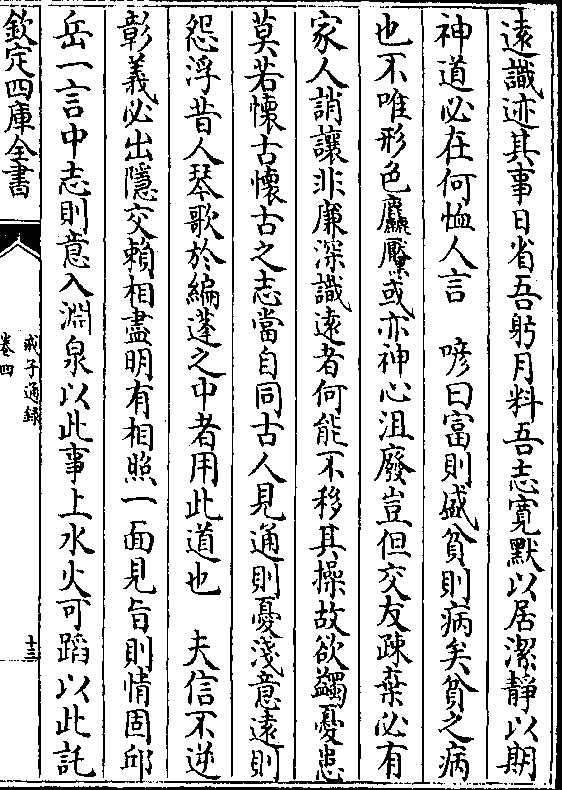 遠識迹其事日省吾躬月料吾志寛默以居潔靜以期
神道必在何恤人言　諺曰富則盛貧則病矣貧之病
也不唯形色麤黶或亦神心沮廢豈但交友疎棄必有
家人誚讓非廉深識遠者何能不移其操故欲蠲憂患
莫若懷古懷古之志當自同古人見通則憂淺意遠則
怨浮昔人琴歌於編蓬之中者用此道也　夫信不逆
彰義必出隱交賴相盡明有相照一面見旨則情固邱
岳一言中志則意入淵泉以此事上水火可蹈以此託
欽定四庫全書
戒子通録
卷四
十三